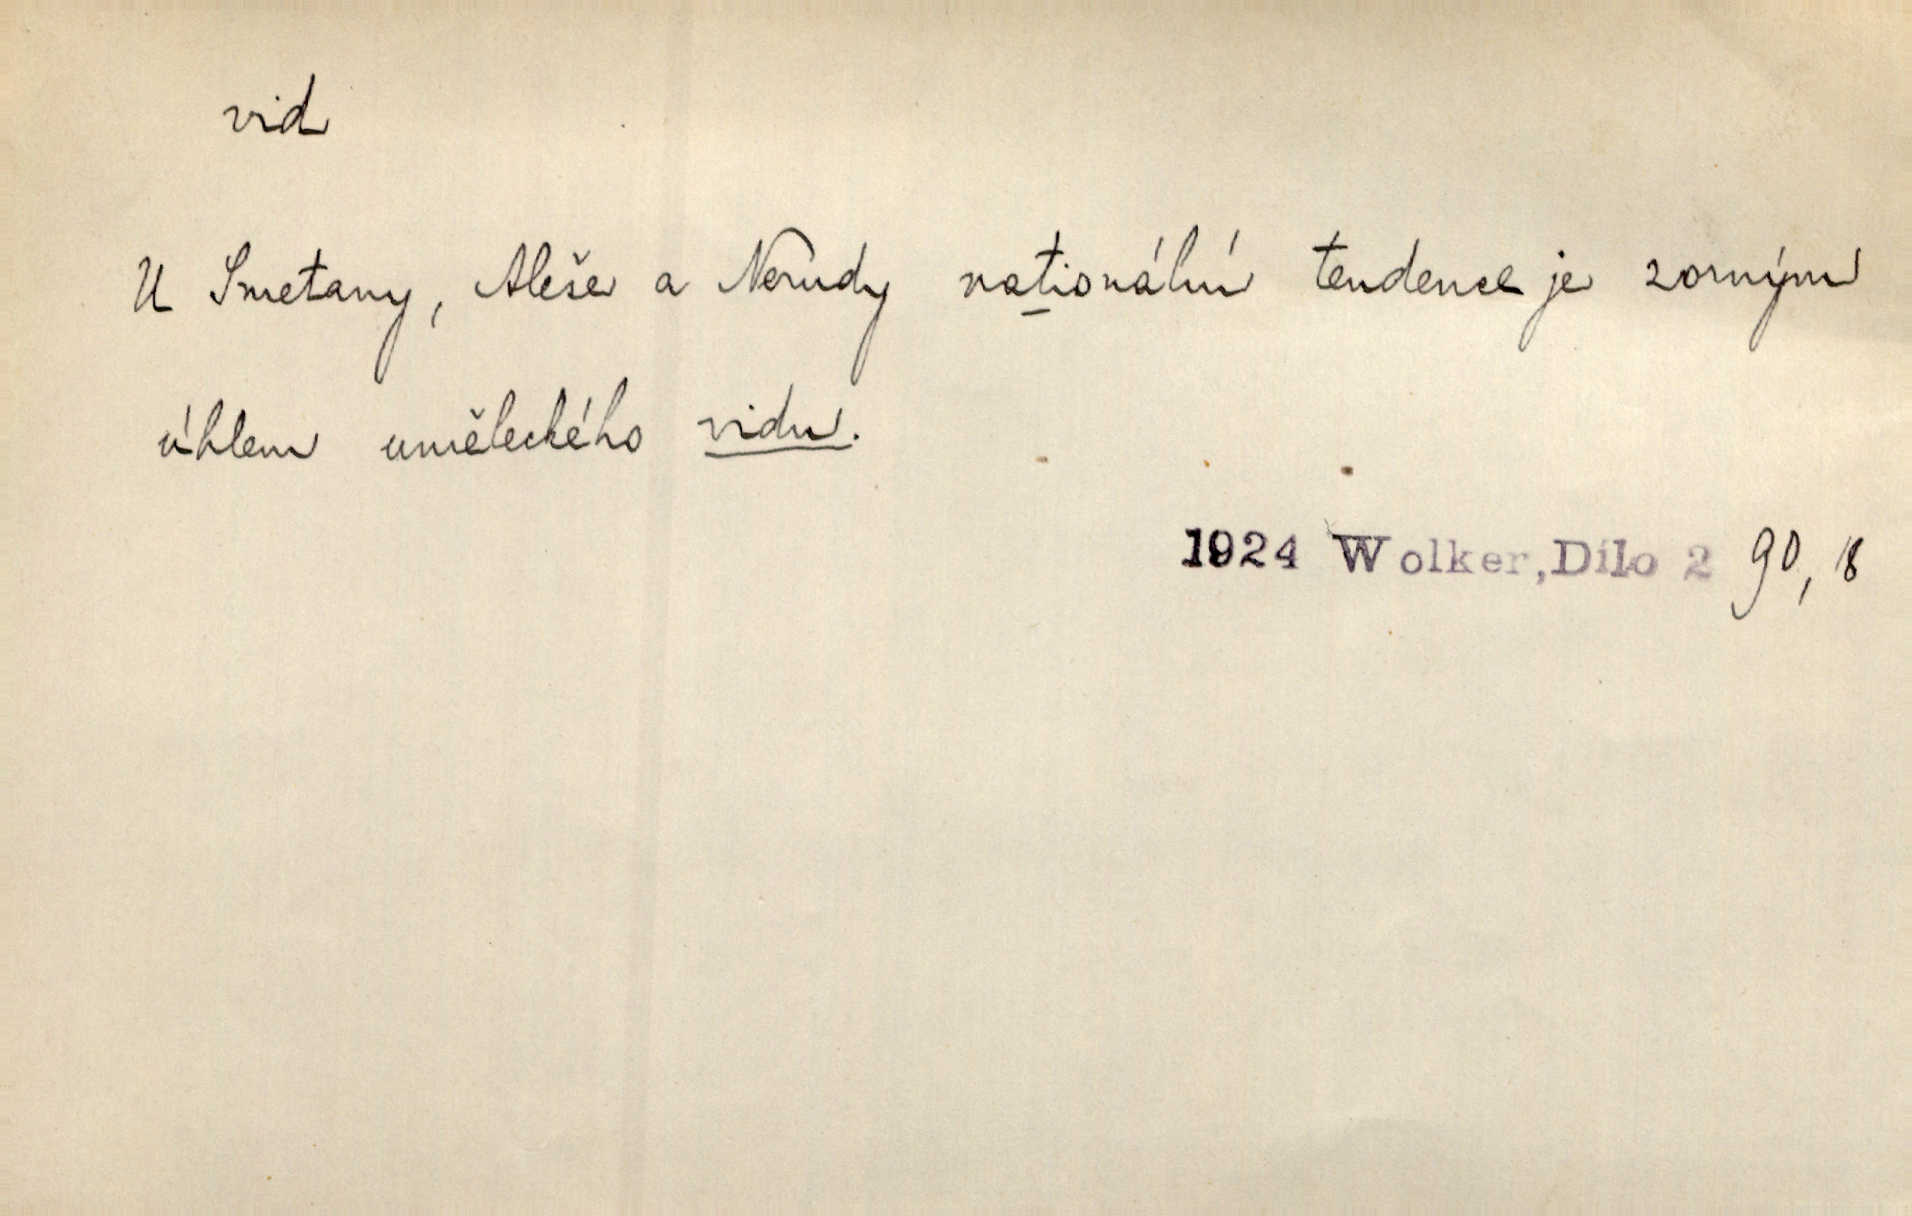 vid
U Smetany, Aleše a Nerudy nationální tendence je zorným
úhlem uměleckého vidu.
1924 Wolker, Dílo 2 90, 8